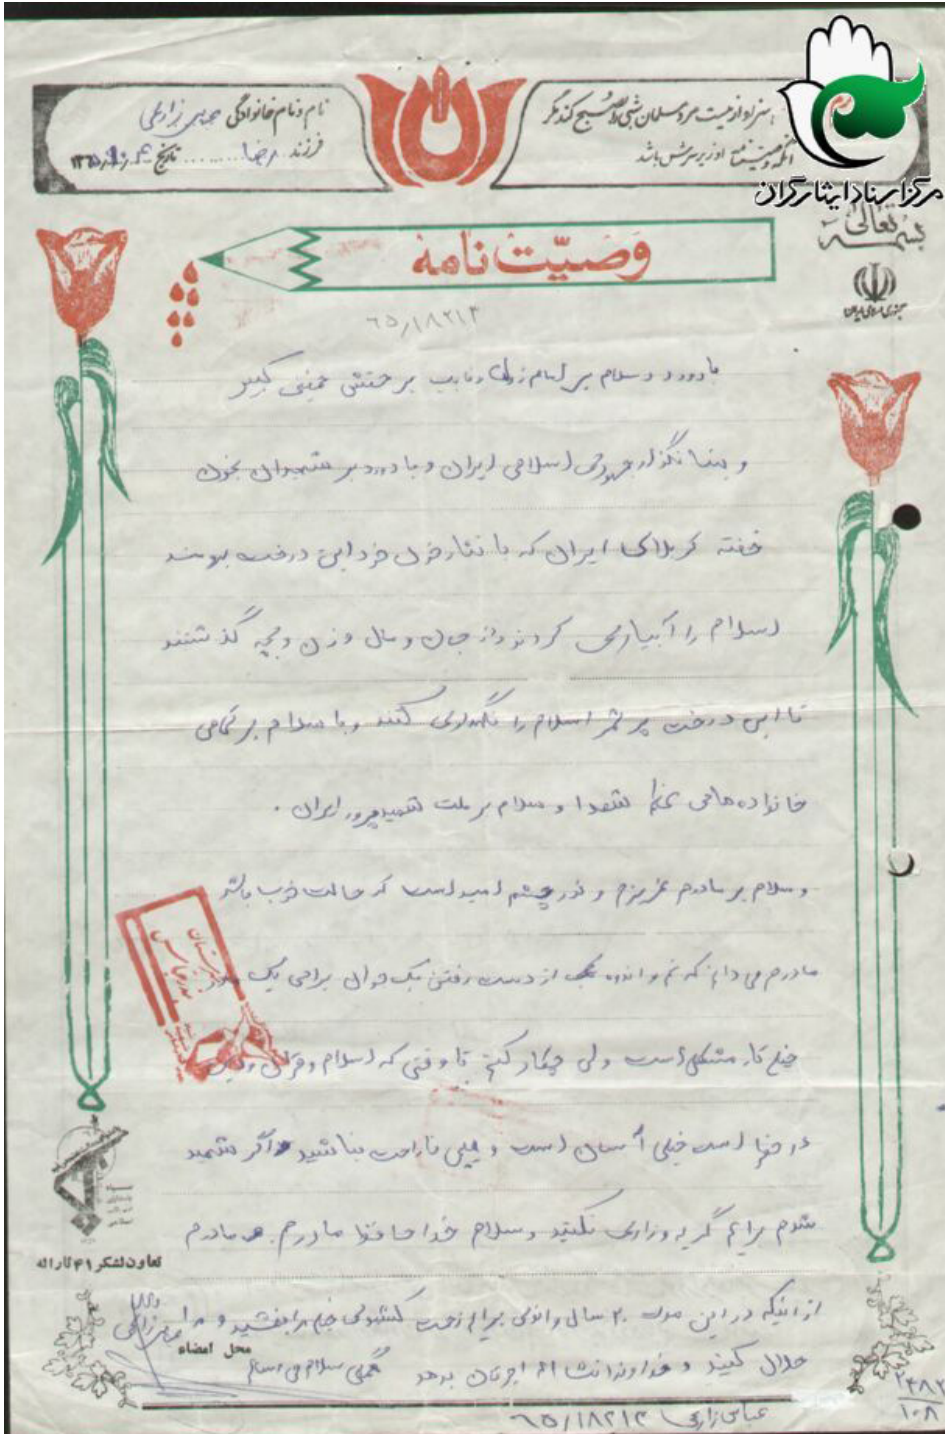 سزاوار نیست مرد مسلمان شبی را صبح کند مگر
آنکه وصیتنامه او زیر سرش باشد
نام و نام خانوادگی عباس زارعی
فرزند رضا تاریخ
مرکز اسناد ایثارگران
بسمه تعالی
جمهوری اسلامی ایران
وصیّت نامه
۶۵/۱۸۲۱۳
با درود و سلام بر امام زمان و نایب بر حقش خمینی کبیر
و بنیانگذار جمهوری اسلامی ایران و با درود بر شهیدان بخون
خفته کربلای ایران که با نثار خون خود این درخت برومند
اسلام را آبیاری کردند و از جان و مال و زن و بچه گذشتند
تا این درخت پر ثمر اسلام را نگهداری کنند و با سلام بر تمامی
خانواده های شهدا و سلام بر ملت شهیدپرور ایران .
و سلام بر مادرم عزیزم و نور چشم امید است که حالت خوب باشد
مادرم می دانم که غم و اندوه از دست رفتن یک جوان برای یک
خیلی مشکل است ولی چکار کنم تا وقتی که اسلام و قرآن
در خطر است خیلی آسان است و خیلی ناراحت نباشید اگر شهید
شدم برایم گریه و زاری نکنید و سلام خدا حافظ مادرم مادرم
از اینکه در این مدت ۲۰ سال برایم زحمت کشیدی مرا ببخشید و مرا
حلال کنید و خداوند انشاء اله اجرتان بدهد
محل امضاء
تعاون لشکر ۴۱ ثاراله
عباس زارعی ۶۵/۱۸۲۱۳
۲۴۸۲
۱۰۸